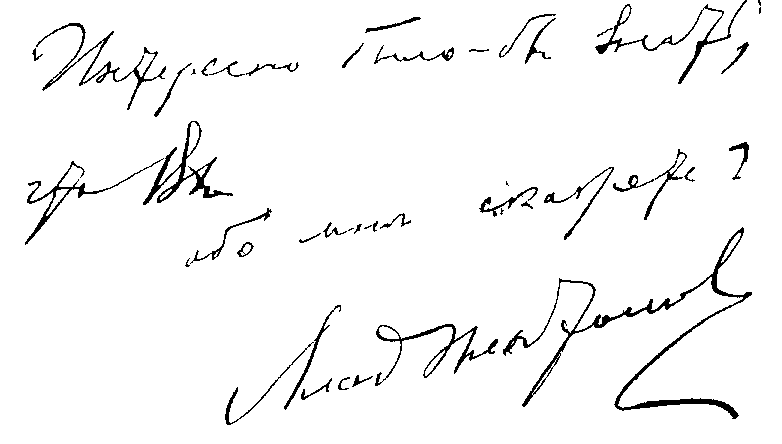 Интересно было-бы знать,
что Вы
обо мне скажете?